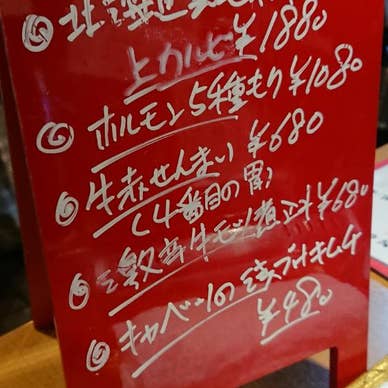 北海道
上カルビ ¥1880
ホルモン5種もり ¥1080
牛赤せんまい ¥680
(4番目の胃)
激辛牛モツ煮 ¥680
キャベツの キムチ
¥480